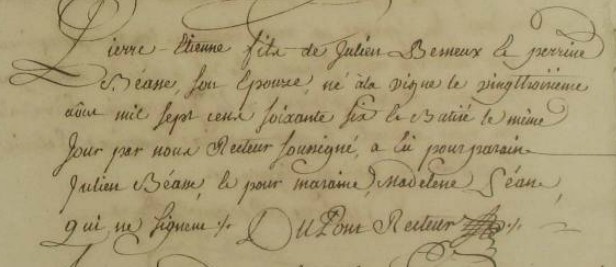 Pierre-Etienne fils de Julien Bemeux & perrine
Béane, son Epouze, né à la vigne le vingttroisieme
aout mil sept cens soixante six & Batisé le même
jour par nous Recteur soussigné, a Eü pour parain
Julien Béane, & pour maraine, Madelene Géane,
qui ne signent ·/· DuPont Recteur